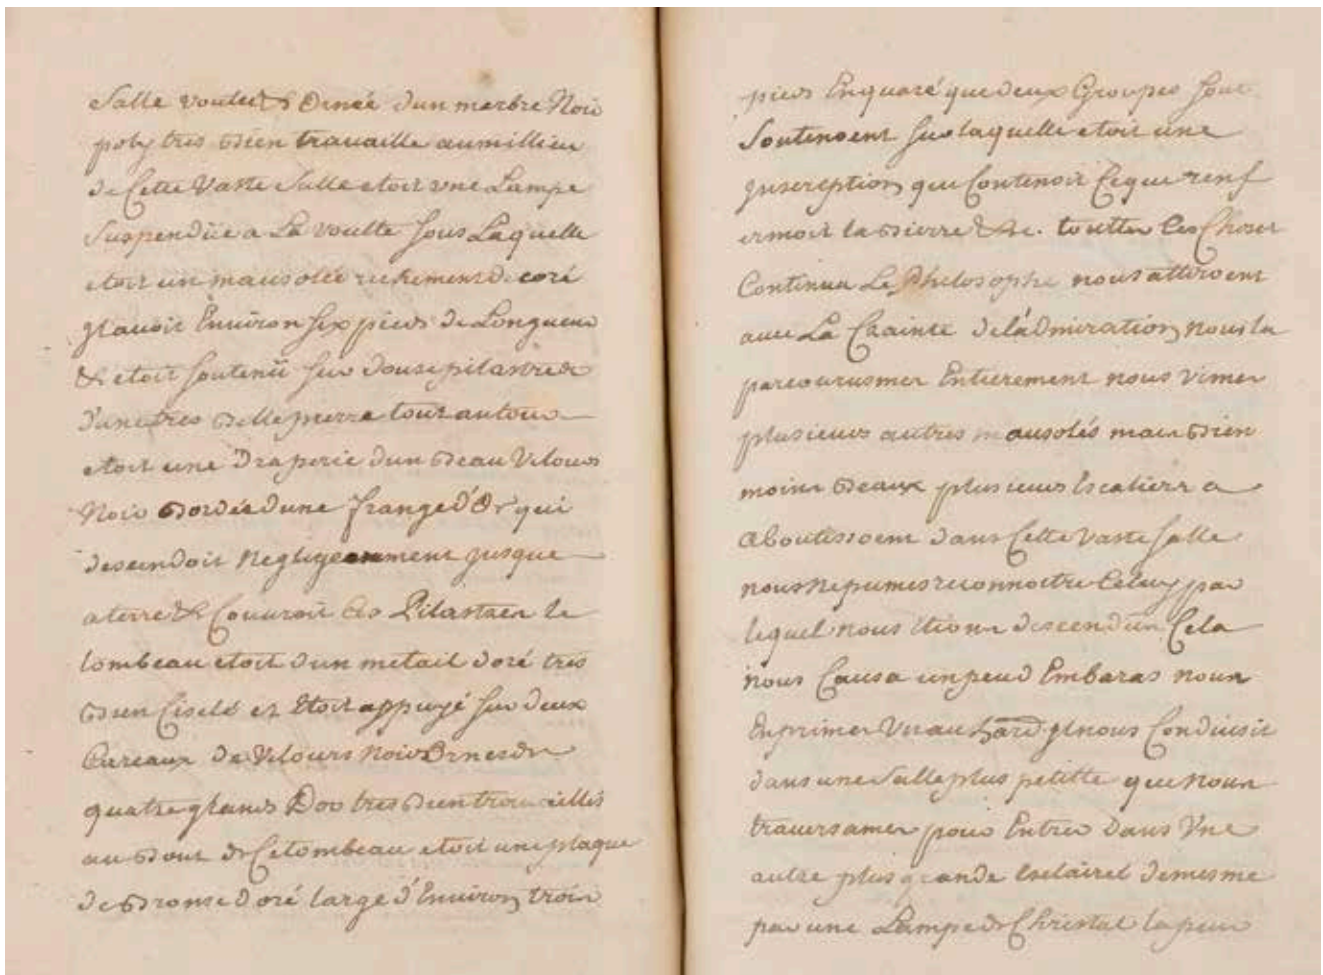 Salle voutée & Ornée dun marbre Noir
poly tres bien travaille aumillieu
de Cette Vaste Salle etoit vne Lampe
Suspendüe a La voutte sous Laquelle
etoit un mausolée richement de coré
jl avoit Environ six pieds de Longueur
& etoit soutenü sur douse pilastres
d'une tres belle pierre tout autour
etoit une Draperie dun beau Velours
Noir bordée dune frange d'Or qui
descendoit Negligemment jusque
a terre & Couvroit les Pilastres le
tombeau etoit dun metail doré tres
bien Ciselé et Etoit appuyé sur deux
Careaux de Velours Noir Ornes de
quatre glands Dor tres bien travaillés
au bout de Ce tombeau etoit une plaque
de bronse doré large d'Environ trois
pieds En quaré que deux Groupes
Soutenoient sur laquelle etoit une
jnscription qui Contenoit Ce que renf
ermoit la bierre &c. touttes Ces Choses
Continua Le Philosophe nous attiroient
avec La Crainte de l'admiration nous la
parcourusmes Entierement nous vimes
plusieurs autres mausolés mais bien
moins beaux plusieurs Escaliers
aboutissoient dans Cette vaste salle
nous Ne pumes reconnoitre Celuy par
lequel nous etions descendus Cela
nous Causa un peu d'Embaras nous
En primes Vn au hard jl nous Condiusit
dans une Salle plus petitte que nous
traversames pour Entrer Dans Vne
autre plus grande Esclairet de mesme
par une Lampe de Christal la peur